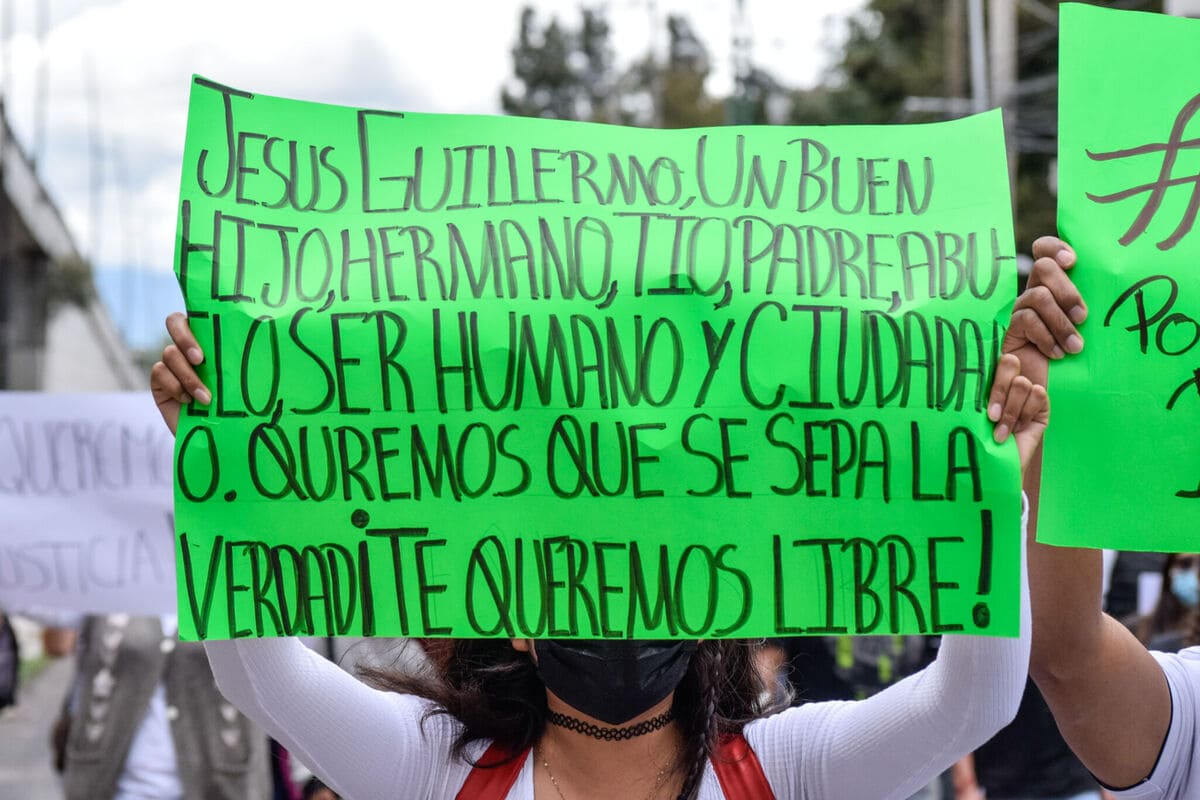 JESUS GUILLERMO, UN BUEN
HIJO, HERMANO, TIO, PADRE, ABU-
ELO, SER HUMANO Y CIUDADAN
O. QUREMOS QUE SE SEPA LA
VERDAD ¡TE QUEREMOS LIBRE!
QUEREMO
USTICIA
#
Po